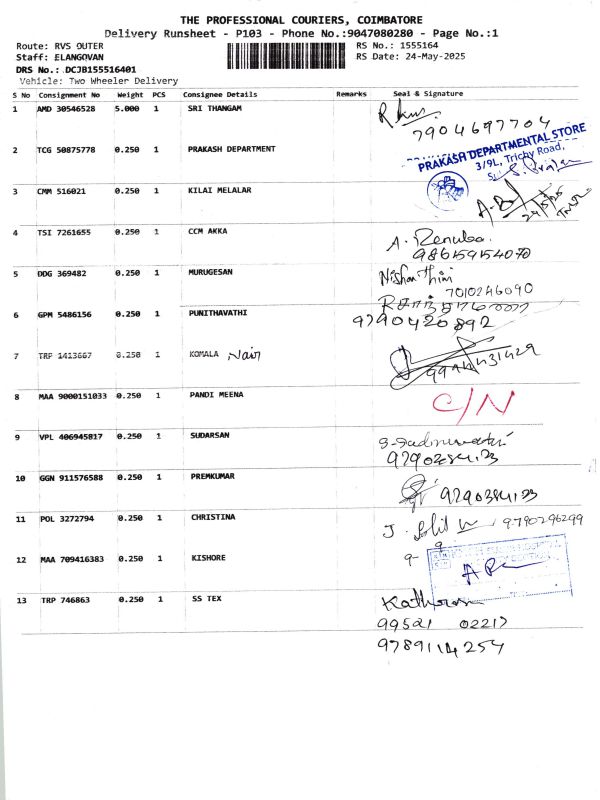 THE PROFESSIONAL COURIERS, COIMBATORE
Delivery Runsheet - P103 - Phone No.:9047080280 - Page No.:1
Route: RVS OUTER RS No.: 1555164
Staff: ELANGOVAN RS Date: 24-May-2025
DRS No.: DCJB155516401
Vehicle: Two Wheeler Delivery
S No Consignment No Weight PCS Consignee Details Remarks Seal & Signature
1 AMD 30546528 5.000 1 SRI THANGAM
7904697704
2 TCG 50875778 0.250 1 PRAKASH DEPARTMENT
PRAKASH DEPARTMENTAL STORE
3/9L, Trichy Road,
3 CMM 516021 0.250 1 KILAI MELALAR
4 TSI 7261655 0.250 1 CCM AKKA A. Renuka
9865954070
5 DDG 369482 0.250 1 MURUGESAN Nishanthini
7010246090
6 GPM 5486156 0.250 1 PUNITHAVATHI
9790420892
7 TRP 1413667 0.250 1 KOMALA Nair
9994431429
8 MAA 9000151033 0.250 1 PANDI MEENA C/N
9 VPL 406945817 0.250 1 SUDARSAN
10 GGN 911576588 0.250 1 PREMKUMAR
11 POL 3272794 0.250 1 CHRISTINA 9790296299
12 MAA 709416383 0.250 1 KISHORE
13 TRP 746863 0.250 1 SS TEX
99521 02217
9789114254